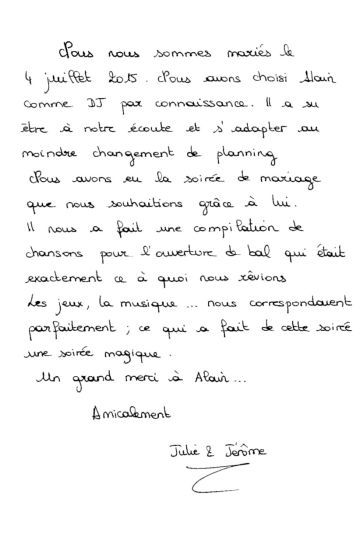 Nous nous sommes mariés le
4 juillet 2015. Nous avons choisi Alain
comme DJ par connaissance. Il a su
être à notre écoute et s'adapter au
moindre changement de planning
Nous avons eu la soirée de mariage
que nous souhaitions grâce à lui.
Il nous a fait une compilation de
chansons pour l'ouverture de bal qui était
exactement ce à quoi nous rêvions
Les jeux, la musique ... nous correspondaient
parfaitement ; ce qui a fait de cette soirée
une soirée magique.
Un grand merci à Alain ...
Amicalement
Julie & Jérôme